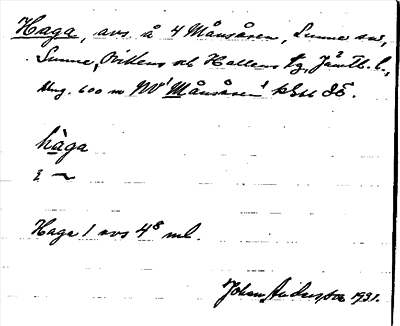 Haga, avs å 4 Månsåsen, Sunne sn,
Sunne, Ovikens och Hallens tg, Jämtl. l.,
Avg. 600 m NV "Månsåsen" kbl 85.
hàga
i ~
Haga 1 avs 4⁸ ml.
Johan Anderson 1931.